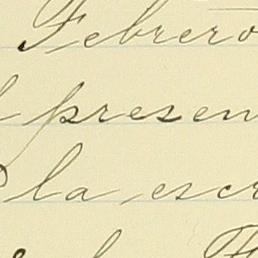 Febrero
presen
la escr